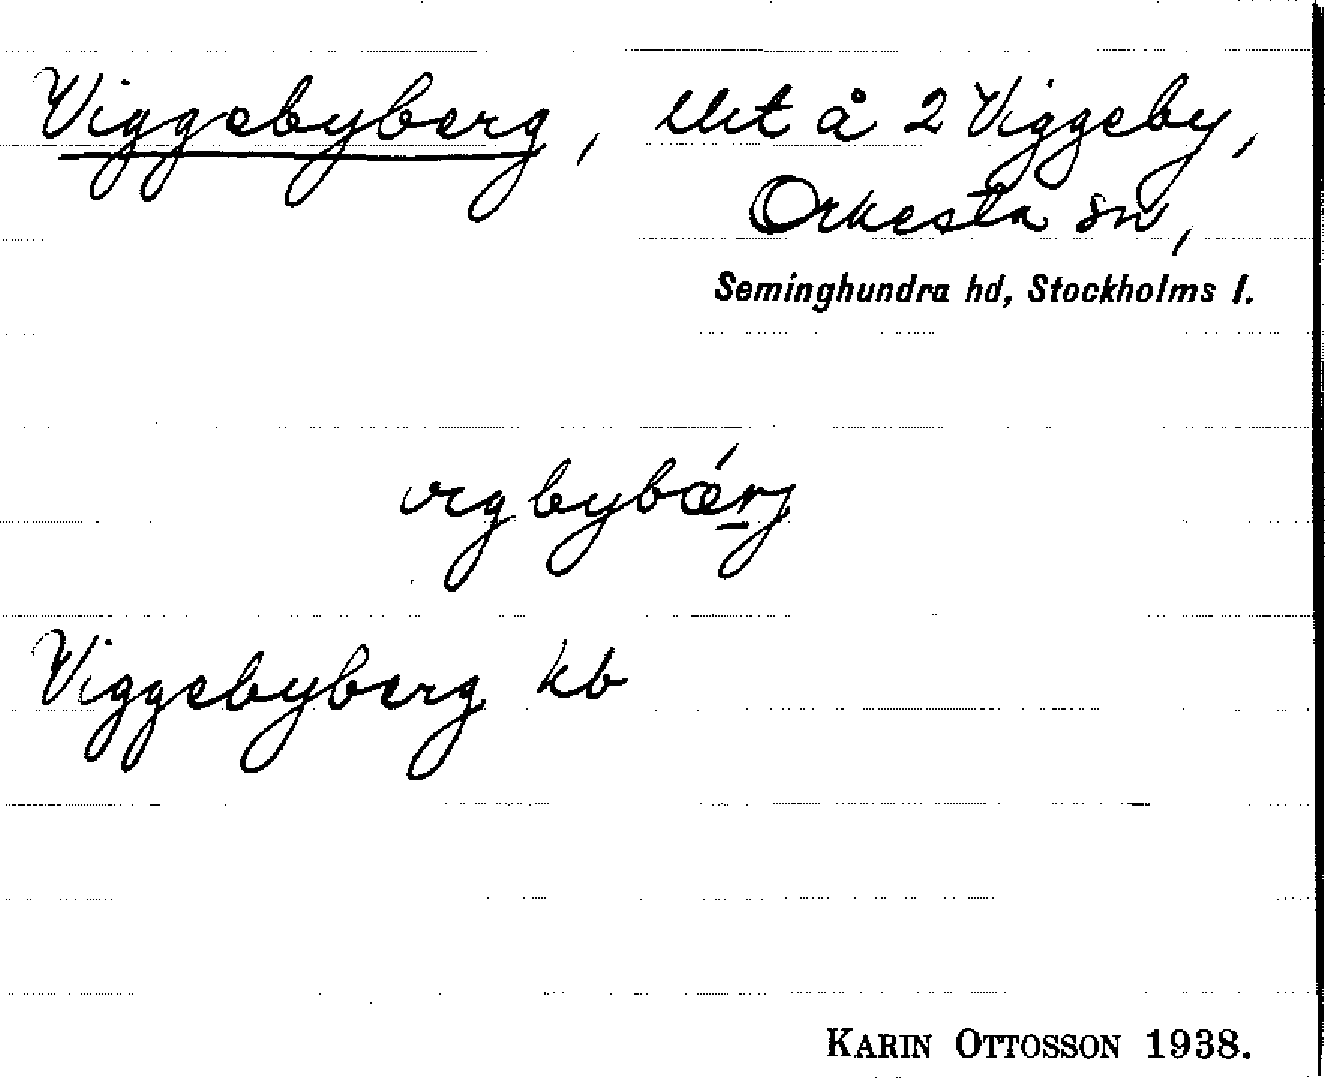 Viggebyberg, Utit å 2 Viggeby,
Orkesta sn,
Seminghundra hd, Stockholms l.
vɩgbybǽrj
Viggebyberg kb
KARIN OTTOSSON 1938.